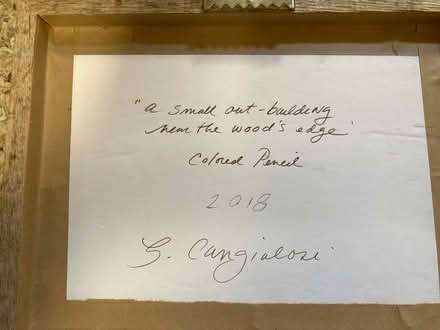 "a small out-building
near the wood's edge'
Colored Pencil
2018
G. Cangialosi